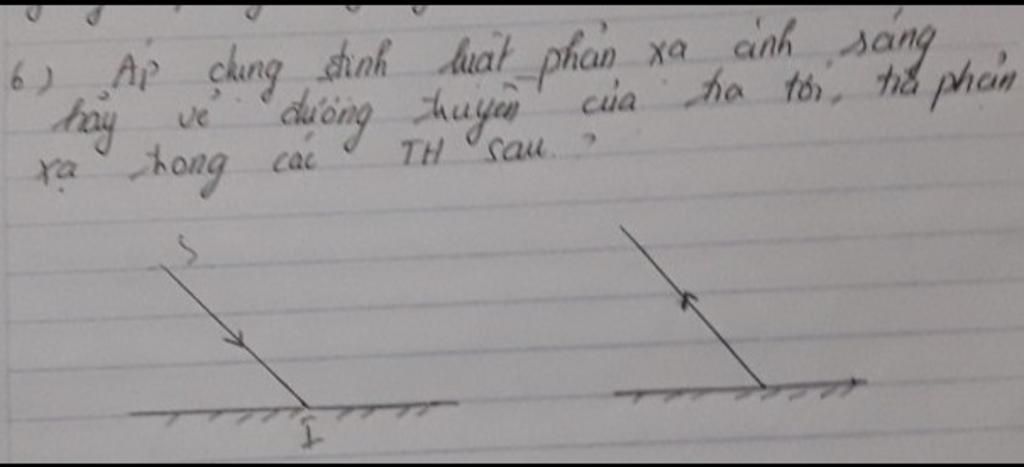 6) Áp dụng định luật phản xạ ánh sáng
hãy vẽ đường truyền của tia tới, tia phản
xạ trong các TH sau ?
S
I